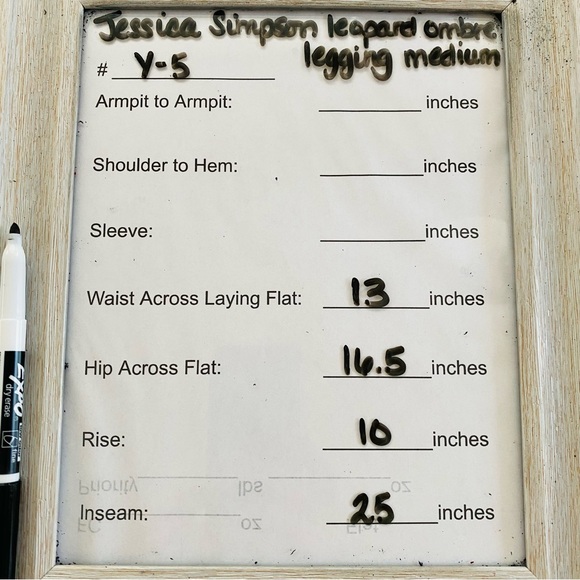 Jessica Simpson leopard ombre
legging medium
# Y-5
Armpit to Armpit: inches
Shoulder to Hem: inches
Sleeve: inches
Waist Across Laying Flat: 13 inches
Hip Across Flat: 16.5 inches
Rise: 10 inches
Priority lbs oz
Inseam: 25 inches
FC oz Flat
EXPO
dry erase